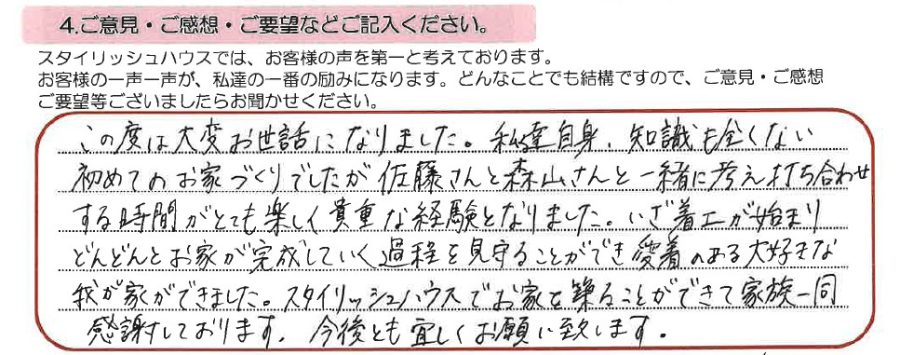 4.ご意見・ご感想・ご要望などご記入ください。
スタイリッシュハウスでは、お客様の声を第一と考えております。
お客様の一声一声が、私達の一番の励みになります。どんなことでも結構ですので、ご意見・ご感想
ご要望等ございましたらお聞かせください。
この度は大変お世話になりました。私達自身、知識も全くない
初めてのお家づくりでしたが佐藤さんと森山さんと一緒に考え打ち合わせ
する時間がとても楽しく貴重な経験となりました。いざ着工が始まり
どんどんとお家が完成していく過程を見守ることができ愛着のある大好きな
我が家ができました。スタイリッシュハウスでお家を築ることができて家族一同
感謝しております。今後とも宜しくお願い致します。